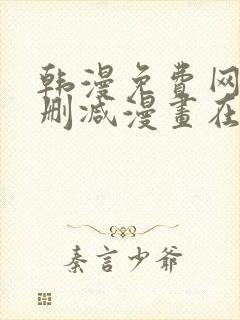 韩漫免费网
删减漫畫在
秦言少爷